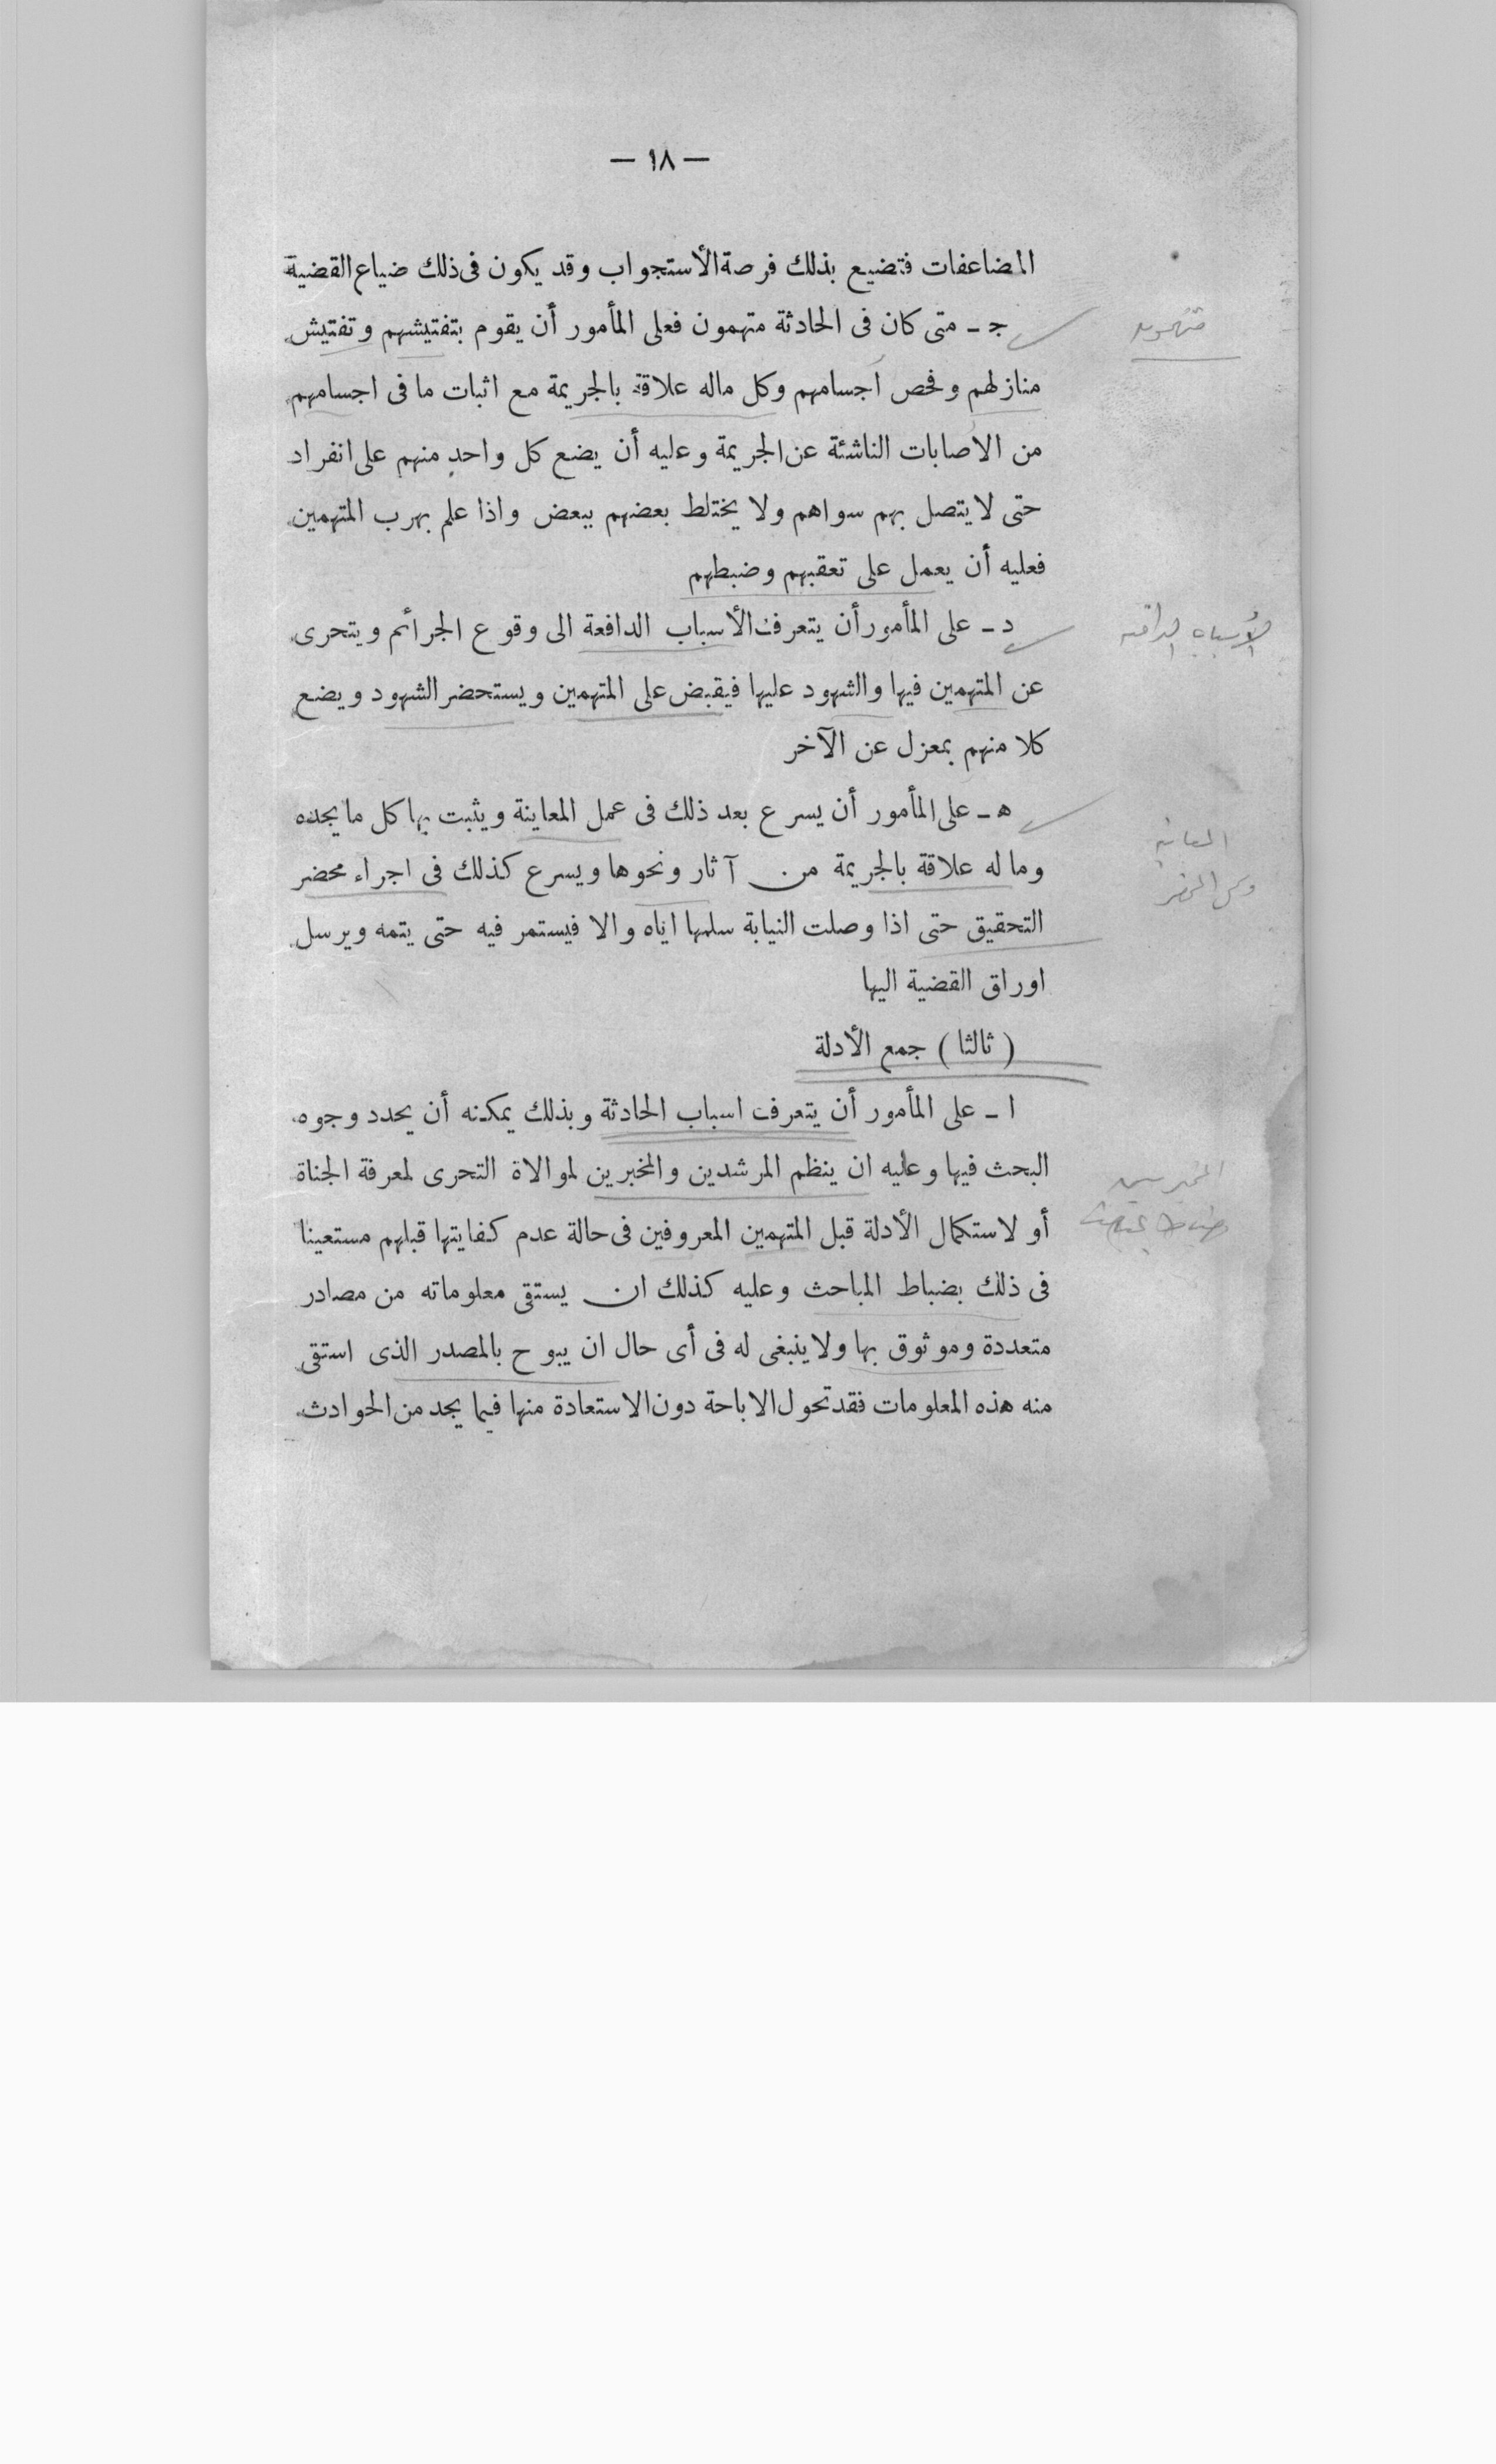 — ١٨ —
المضاعفات فتضيع بذلك فرصة الأستجواب وقد يكون فى ذلك ضياع القضية
جـ ـ متى كان فى الحادثة متهمون فعلى المأمور أن يقوم بتفتيشهم وتفتيش
متهمون
منازلهم وفحص أجسامهم وكل ماله علاقة بالجريمة مع اثبات ما فى اجسامهم
من الاصابات الناشئة عن الجريمة وعليه أن يضع كل واحد منهم على انفراد
حتى لا يتصل بهم سواهم ولا يختلط بعضهم ببعض واذا علم بهرب المتهمين
فعليه أن يعمل على تعقبهم وضبطهم
د ـ على المأمور أن يتعرف الأسباب الدافعة الى وقوع الجرائم ويتحرى
الأسباب الدافعه
عن المتهمين فيها والشهود عليها فيقبض على المتهمين ويستحضر الشهود ويضع
كلا منهم بمعزل عن الآخر
هـ ـ على المأمور أن يسرع بعد ذلك فى عمل المعاينة ويثبت بها كل ما يجده
المعاينه
وما له علاقة بالجريمة من آثار ونحوها ويسرع كذلك فى اجراء محضر
المحضر
التحقيق حتى اذا وصلت النيابة سلمها اياه والا فيستمر فيه حتى يتمه ويرسل
اوراق القضية اليها
( ثالثا ) جمع الأدلة
ا ـ على المأمور أن يتعرف اسباب الحادثة وبذلك يمكنه أن يحدد وجوه
البحث فيها وعليه ان ينظم المرشدين والمخبرين لموالاة التحرى لمعرفة الجناة
المخبرين
أو لاستكمال الأدلة قبل المتهمين المعروفين فى حالة عدم كفايتها قبلهم مستعينا
وضباط المباحث
فى ذلك بضباط المباحث وعليه كذلك ان يستقى معلوماته من مصادر
متعددة وموثوق بها ولا ينبغى له فى أى حال ان يبوح بالمصدر الذى استقى
منه هذه المعلومات فقد تحول الاباحة دون الاستعادة منها فيما يجد من الحوادث